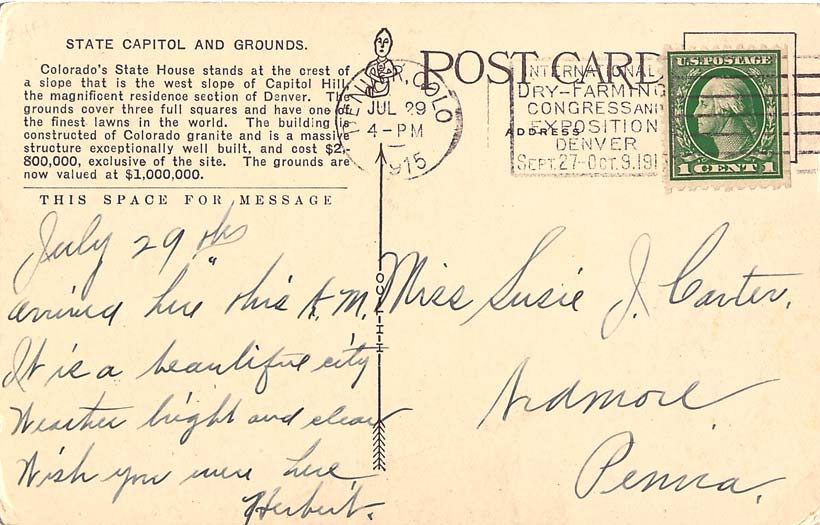 STATE CAPITOL AND GROUNDS.
Colorado's State House stands at the crest of
a slope that is the west slope of Capitol Hill,
the magnificent residence section of Denver. The
grounds cover three full squares and have one of
the finest lawns in the world. The building is
constructed of Colorado granite and is a massive
structure exceptionally well built, and cost $2,
800,000, exclusive of the site. The grounds are
now valued at $1,000,000.
THIS SPACE FOR MESSAGE
July 29th
arrived here this A.M.
It is a beautiful city
Weather bright and clear
Wish you were here,
Herbert.
POST CARD
ADDRESS
DENVER, COLO
JUL 29
4-PM
1915
INTERNATIONAL
DRY-FARMING
CONGRESS AND
EXPOSITION
DENVER
SEPT. 27-OCT. 9, 191
U.S. POSTAGE
1 CENT 1
Miss Susie J. Carter,
Ardmore
Penna.